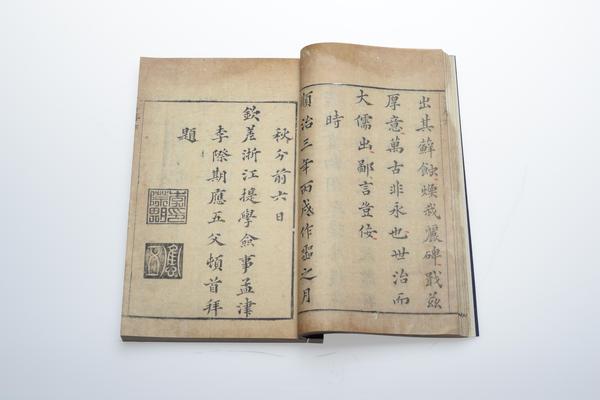 出其蘚蝕煙我麗碑戢茲
厚意萬古非永也世治而
大儒出鄙言豈佞
時
順治三年丙戌作噩之月
秋分前六日
欽差浙江提學僉事孟津
李際期應五父頓首拜
題
李印際期
應五